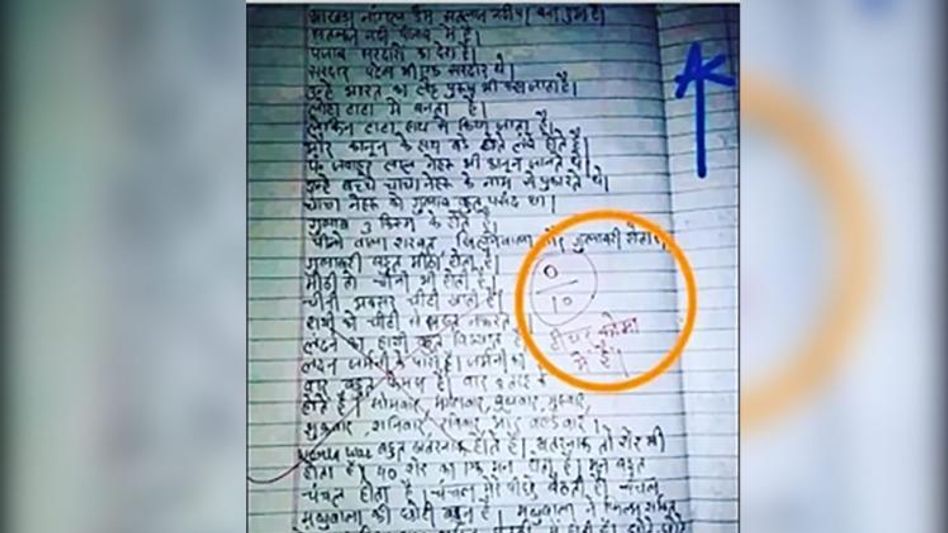 भाखड़ा नांगल डैम सतलज नदी पर बना हुआ है।
सतलज नदी पंजाब में है।
पंजाब सरदारों का देश है।
सरदार पटेल भी एक सरदार थे।
उन्हें भारत का लौह पुरुष भी कहा जाता है।
लोहा टाटा में बनता है।
लेकिन टाटा हाथ से किया जाता है।
और कानून के हाथ बड़े लंबे होते हैं।
पं जवाहर लाल नेहरू भी कानून जानते थे।
उन्हें बच्चे चाचा नेहरू के नाम से पुकारते थे।
चाचा नेहरू को गुलाब बहुत पसंद था।
गुलाब 3 किस्म के होते हैं
पीने वाला शरबत, और गुलाबरी होता।
गुलाबरी बहुत मीठी होती है।
मीठी तो चीनी भी होती है।
चीनी अक्सर चींटी खाती है।
हाथी को चींटी से बहुत नफरत
लंदन का हाथी बहुत विख्यात है
लंदन जर्मनी के पास है। जर्मनी का
वार बहुत फेमस है। वार 8 तरह के
होते हैं। सोमवार, मंगलवार, बुधवार, गुरुवार,
शुक्रवार, शनिवार, रविवार, वर्ल्डवार।
world war बहुत खतरनाक होते है। खतरनाक तो शेर भी
होता है। 40 शेर का एक मन होता है। मन बहुत
चंचल होता है। चंचल मेरे पीछे बैठती है। चंचल
मधुबाला की छोटी बहन है। मधुबाला ने फिल्म
AK
0
10
टीचर कोमा
में है।